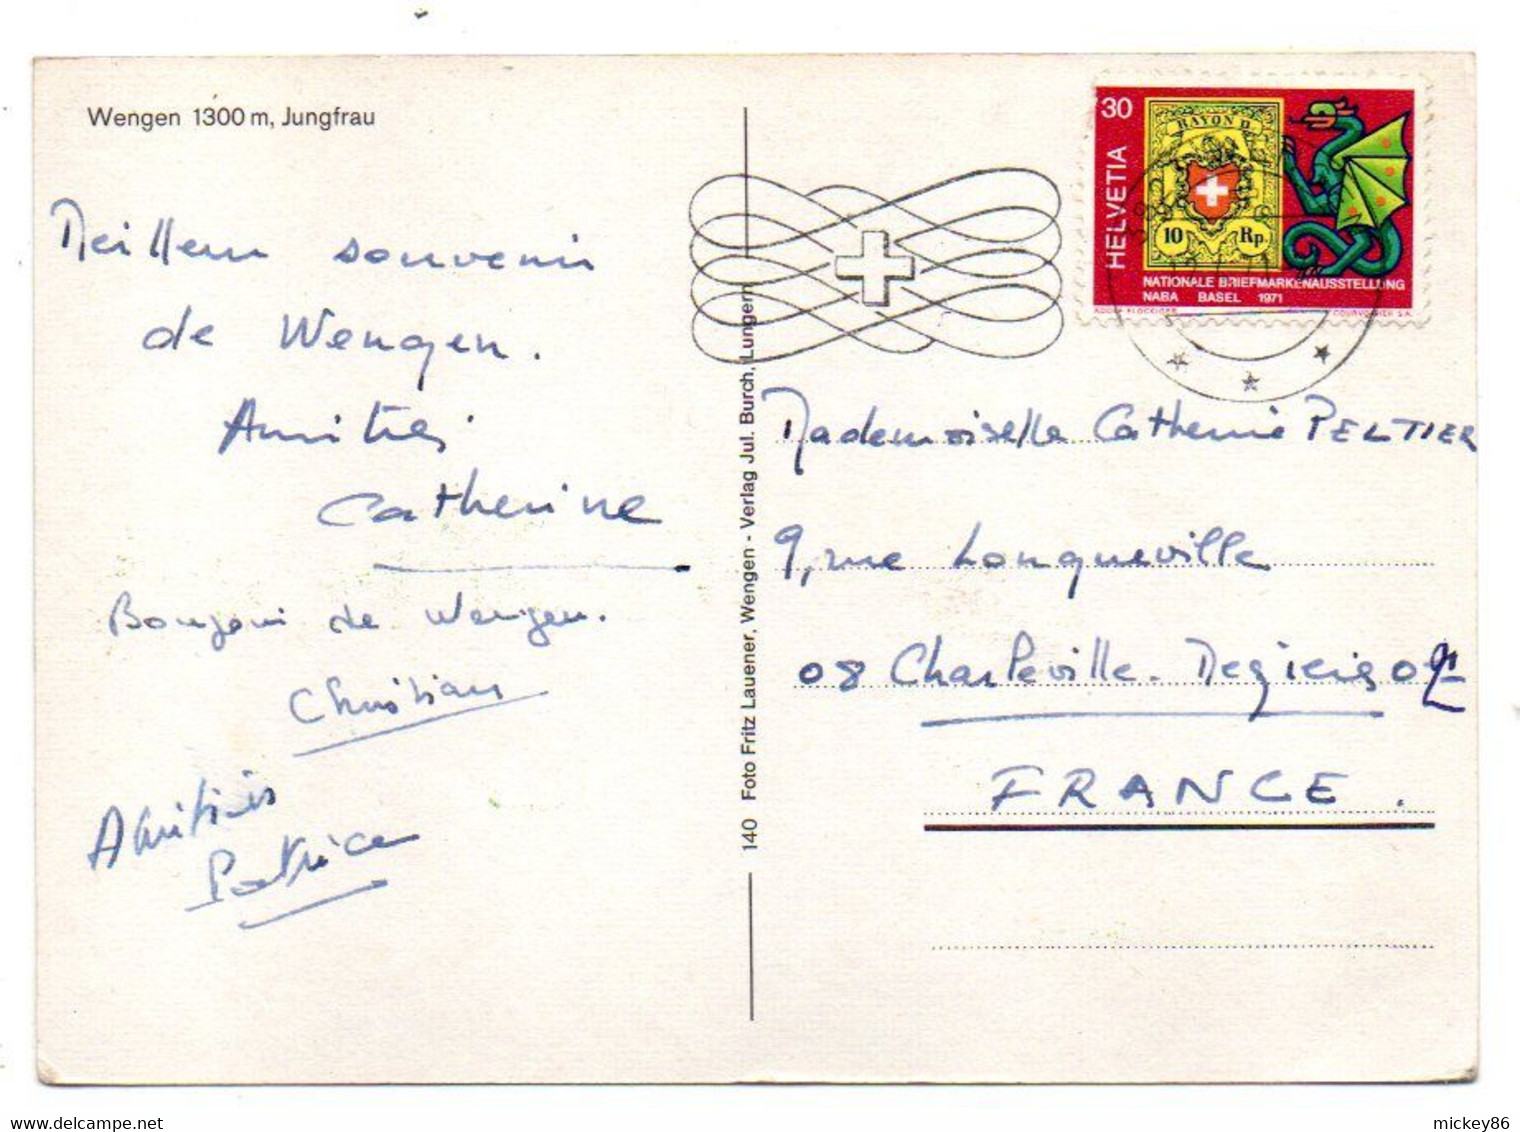 Wengen 1300 m, Jungfrau
Meilleur souvenir
de Wengen.
Amitiés
Catherine
Bonjour de Wengen.
Christian
Amitiés
Patrice
140 Foto Fritz Lauener, Wengen - Verlag Jul. Burch, Lungern
30
HELVETIA
RAYON II
10 Rp.
NATIONALE BRIEFMARKENAUSSTELLUNG
NABA BASEL 1971
COURVOISIER S.A.
Mademoiselle Catherine PELTIER
9, rue Longueville
08 Charleville-Mezieres
FRANCE.
delcampe.net
mickey86